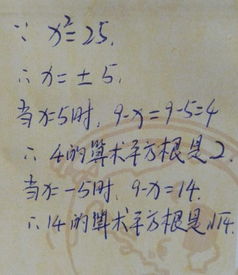 ∵ x²=25,
∴ x=±5,
当x=5时, 9-x=9-5=4
∴ 4的算术平方根是2.
当x=-5时, 9-x=14.
∴14的算术平方根是√14.